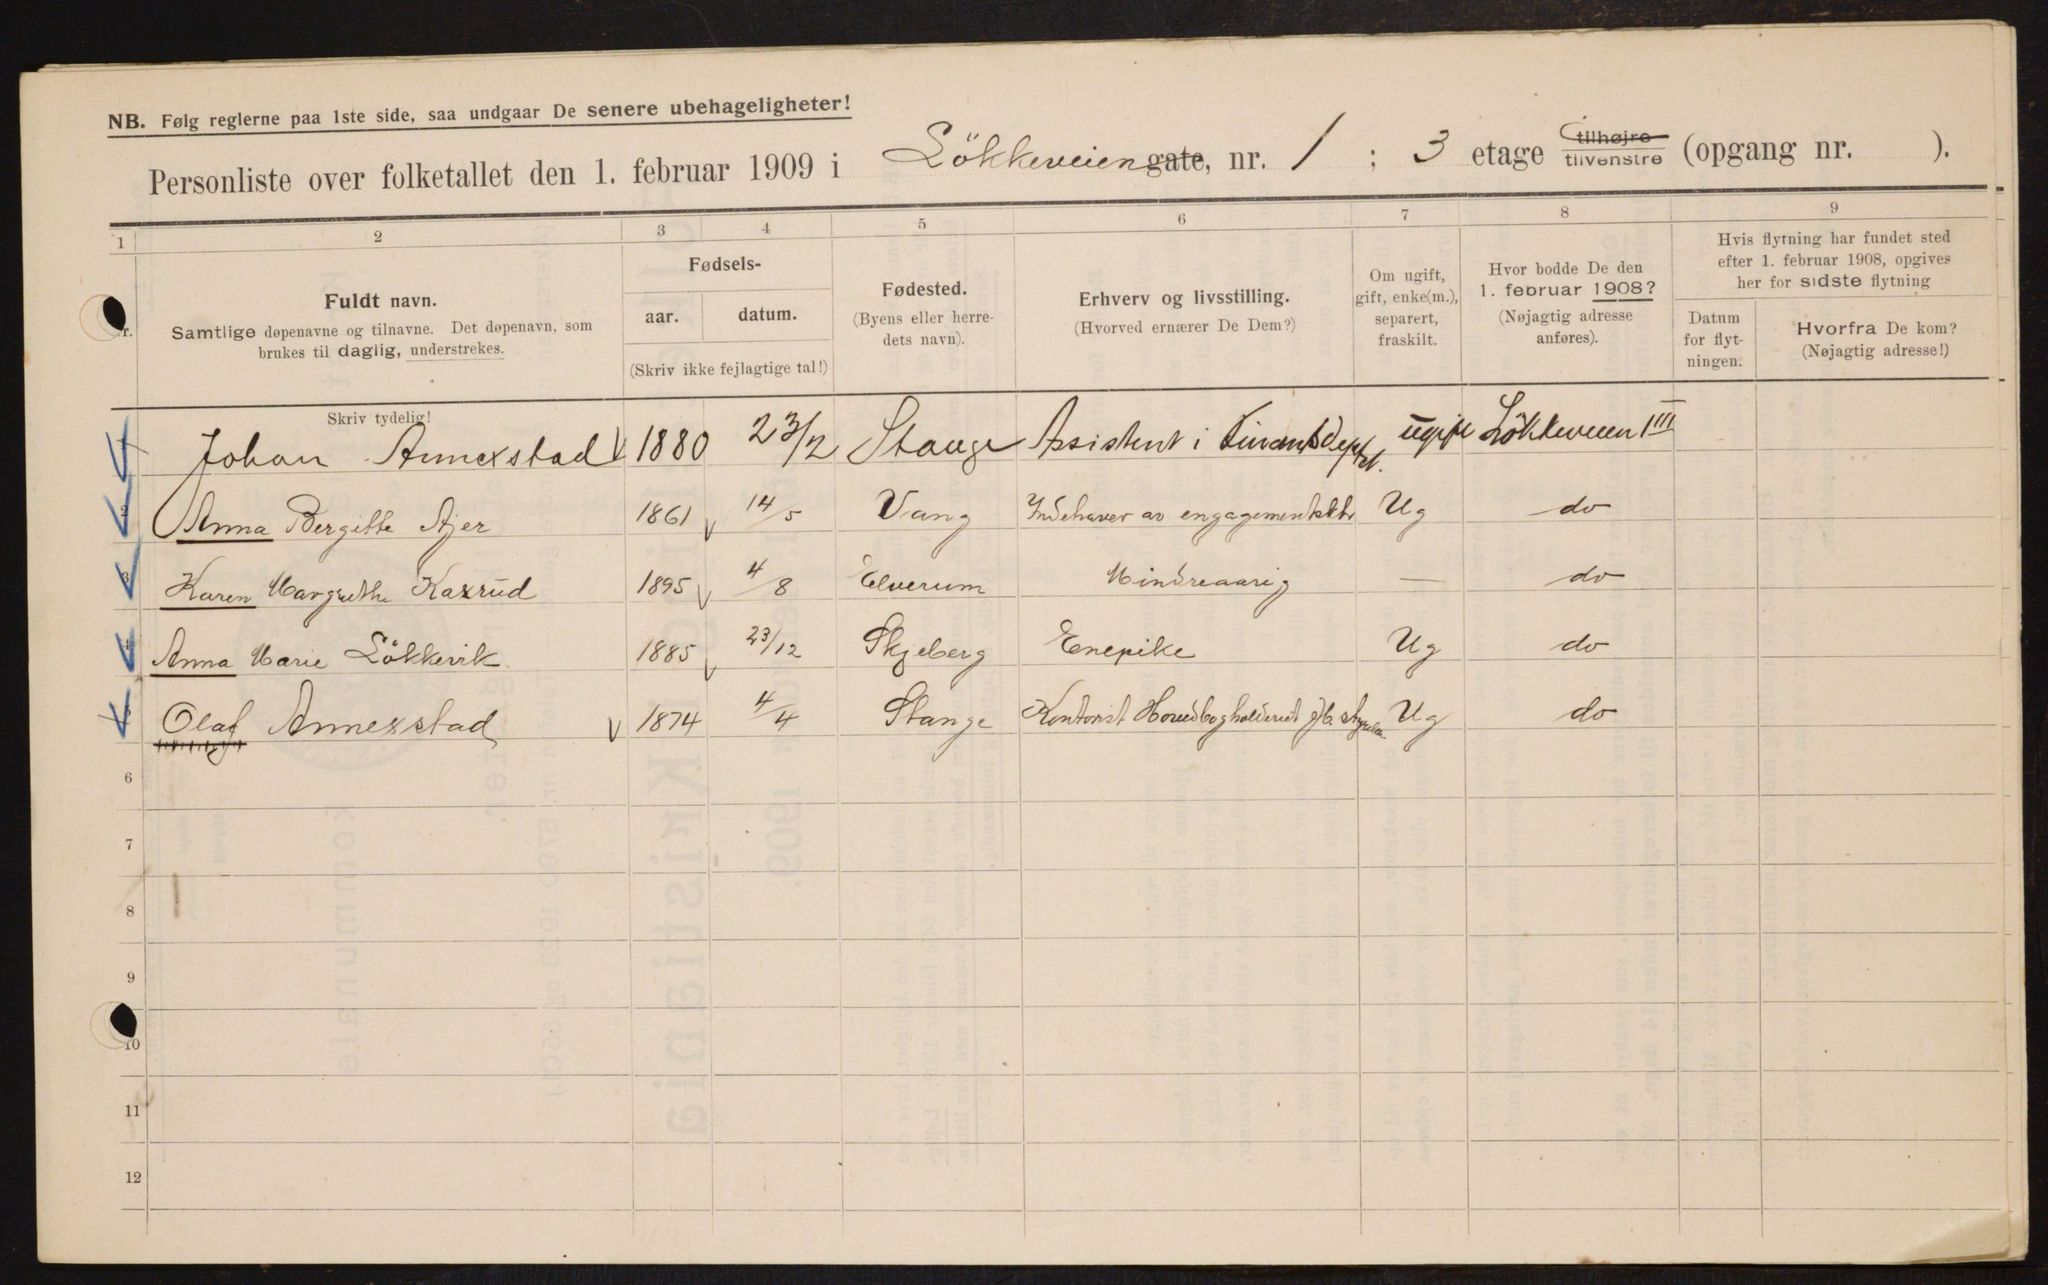 NB. Følg reglerne paa 1ste side, saa undgaar De senere ubehageligheter!
Personliste over folketallet den 1. februar 1909 i Lökkeveien gate, nr. 1 ; 3 etage tilhøjre tilvenstre (opgang nr. ).
1 2 3 4 5 6 7 8 9
Nr.
Fuldt navn.
Samtlige døpenavne og tilnavne. Det døpenavn, som
brukes til daglig, understrekes.
Skriv tydelig!
Fødsels-
aar. datum.
(Skriv ikke fejlagtige tal!)
Fødested.
(Byens eller herre-
dets navn).
Erhverv og livsstilling.
(Hvorved ernærer De Dem?)
Om ugift,
gift, enke(m.),
separert,
fraskilt.
Hvor bodde De den
1. februar 1908?
(Nøjagtig adresse
anføres).
Hvis flytning har fundet sted
efter 1. februar 1908, opgives
her for sidste flytning
Datum
for flyt-
ningen.
Hvorfra De kom?
(Nøjagtig adresse!)
1 Johan Annexstad 1880 23/2 Stange Assistent i Finansdeptet. ugift Lökkeveien 1 III
2 Anna Bergitte Ajer 1861 14/5 Vang Indehaver av Ug do
3 Karen Margrethe Kaxrud 1895 4/8 Elverum Mindreaarig — do
4 Anna Marie Lökkevik 1885 23/12 Skjeberg Enepike Ug do
5 Olaf Annexstad 1874 4/4 Stange Kontorist Hovedbogholderiet Ug do
6
7
8
9
10
11
12